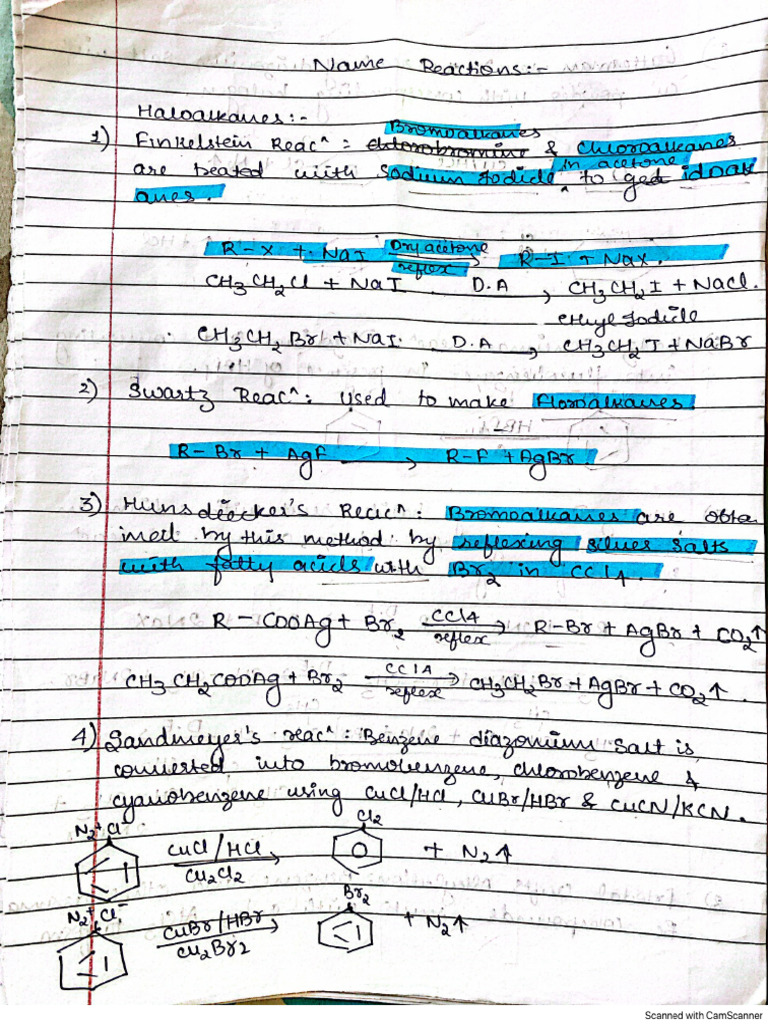 Name Reactions:-
Haloalkanes:-
Bromoalkanes
1) Finkelstein Reacⁿ: & Chloroalkanes
in acetone
are heated with Sodium Iodide, to ged idoalk
anes.
R-X + NaI Dry acetone reflex → R-I + NaX.
CH3CH2Cl + NaI D.A → CH3CH2I + NaCl.
Ethyl Iodide
CH3CH2Br + NaI D.A → CH3CH2I + NaBr
2) Swartz Reac^: Used to make Floroalkanes.
R-Br + AgF → R-F + AgBr
3) Hunsdiecker's Reac^: Bromoalkanes are obta
ined by this method by reflexing silver salts
with fatty acids with Br2 in CCl4.
R-COOAg + Br2 CCl4 reflex → R-Br + AgBr + CO2↑
CH3CH2COOAg + Br2 CCl4 reflex → CH3CH2Br + AgBr + CO2↑.
4) Sandmeyer's reac^: Benzene diazonium salt is
converted into bromobenzene, chlorobenzene &
cyanobenzene using CuCl/HCl, CuBr/HBr & CuCN/KCN.
N2+Cl- CuCl/HCl Cu2Cl2 → Cl2 + N2↑
N2+Cl- CuBr/HBr Cu2Br2 → Br2 + N2↑
Scanned with CamScanner